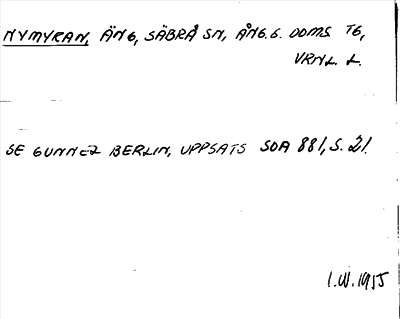 NYMYRAN, ÄNG, SÄBRÅ SN, ÅNG.S. DOMS TG,
VRNL. L.
SE GUNNEL BERLIN, UPPSATS SOA 881, S. 21.
I.W. 1955